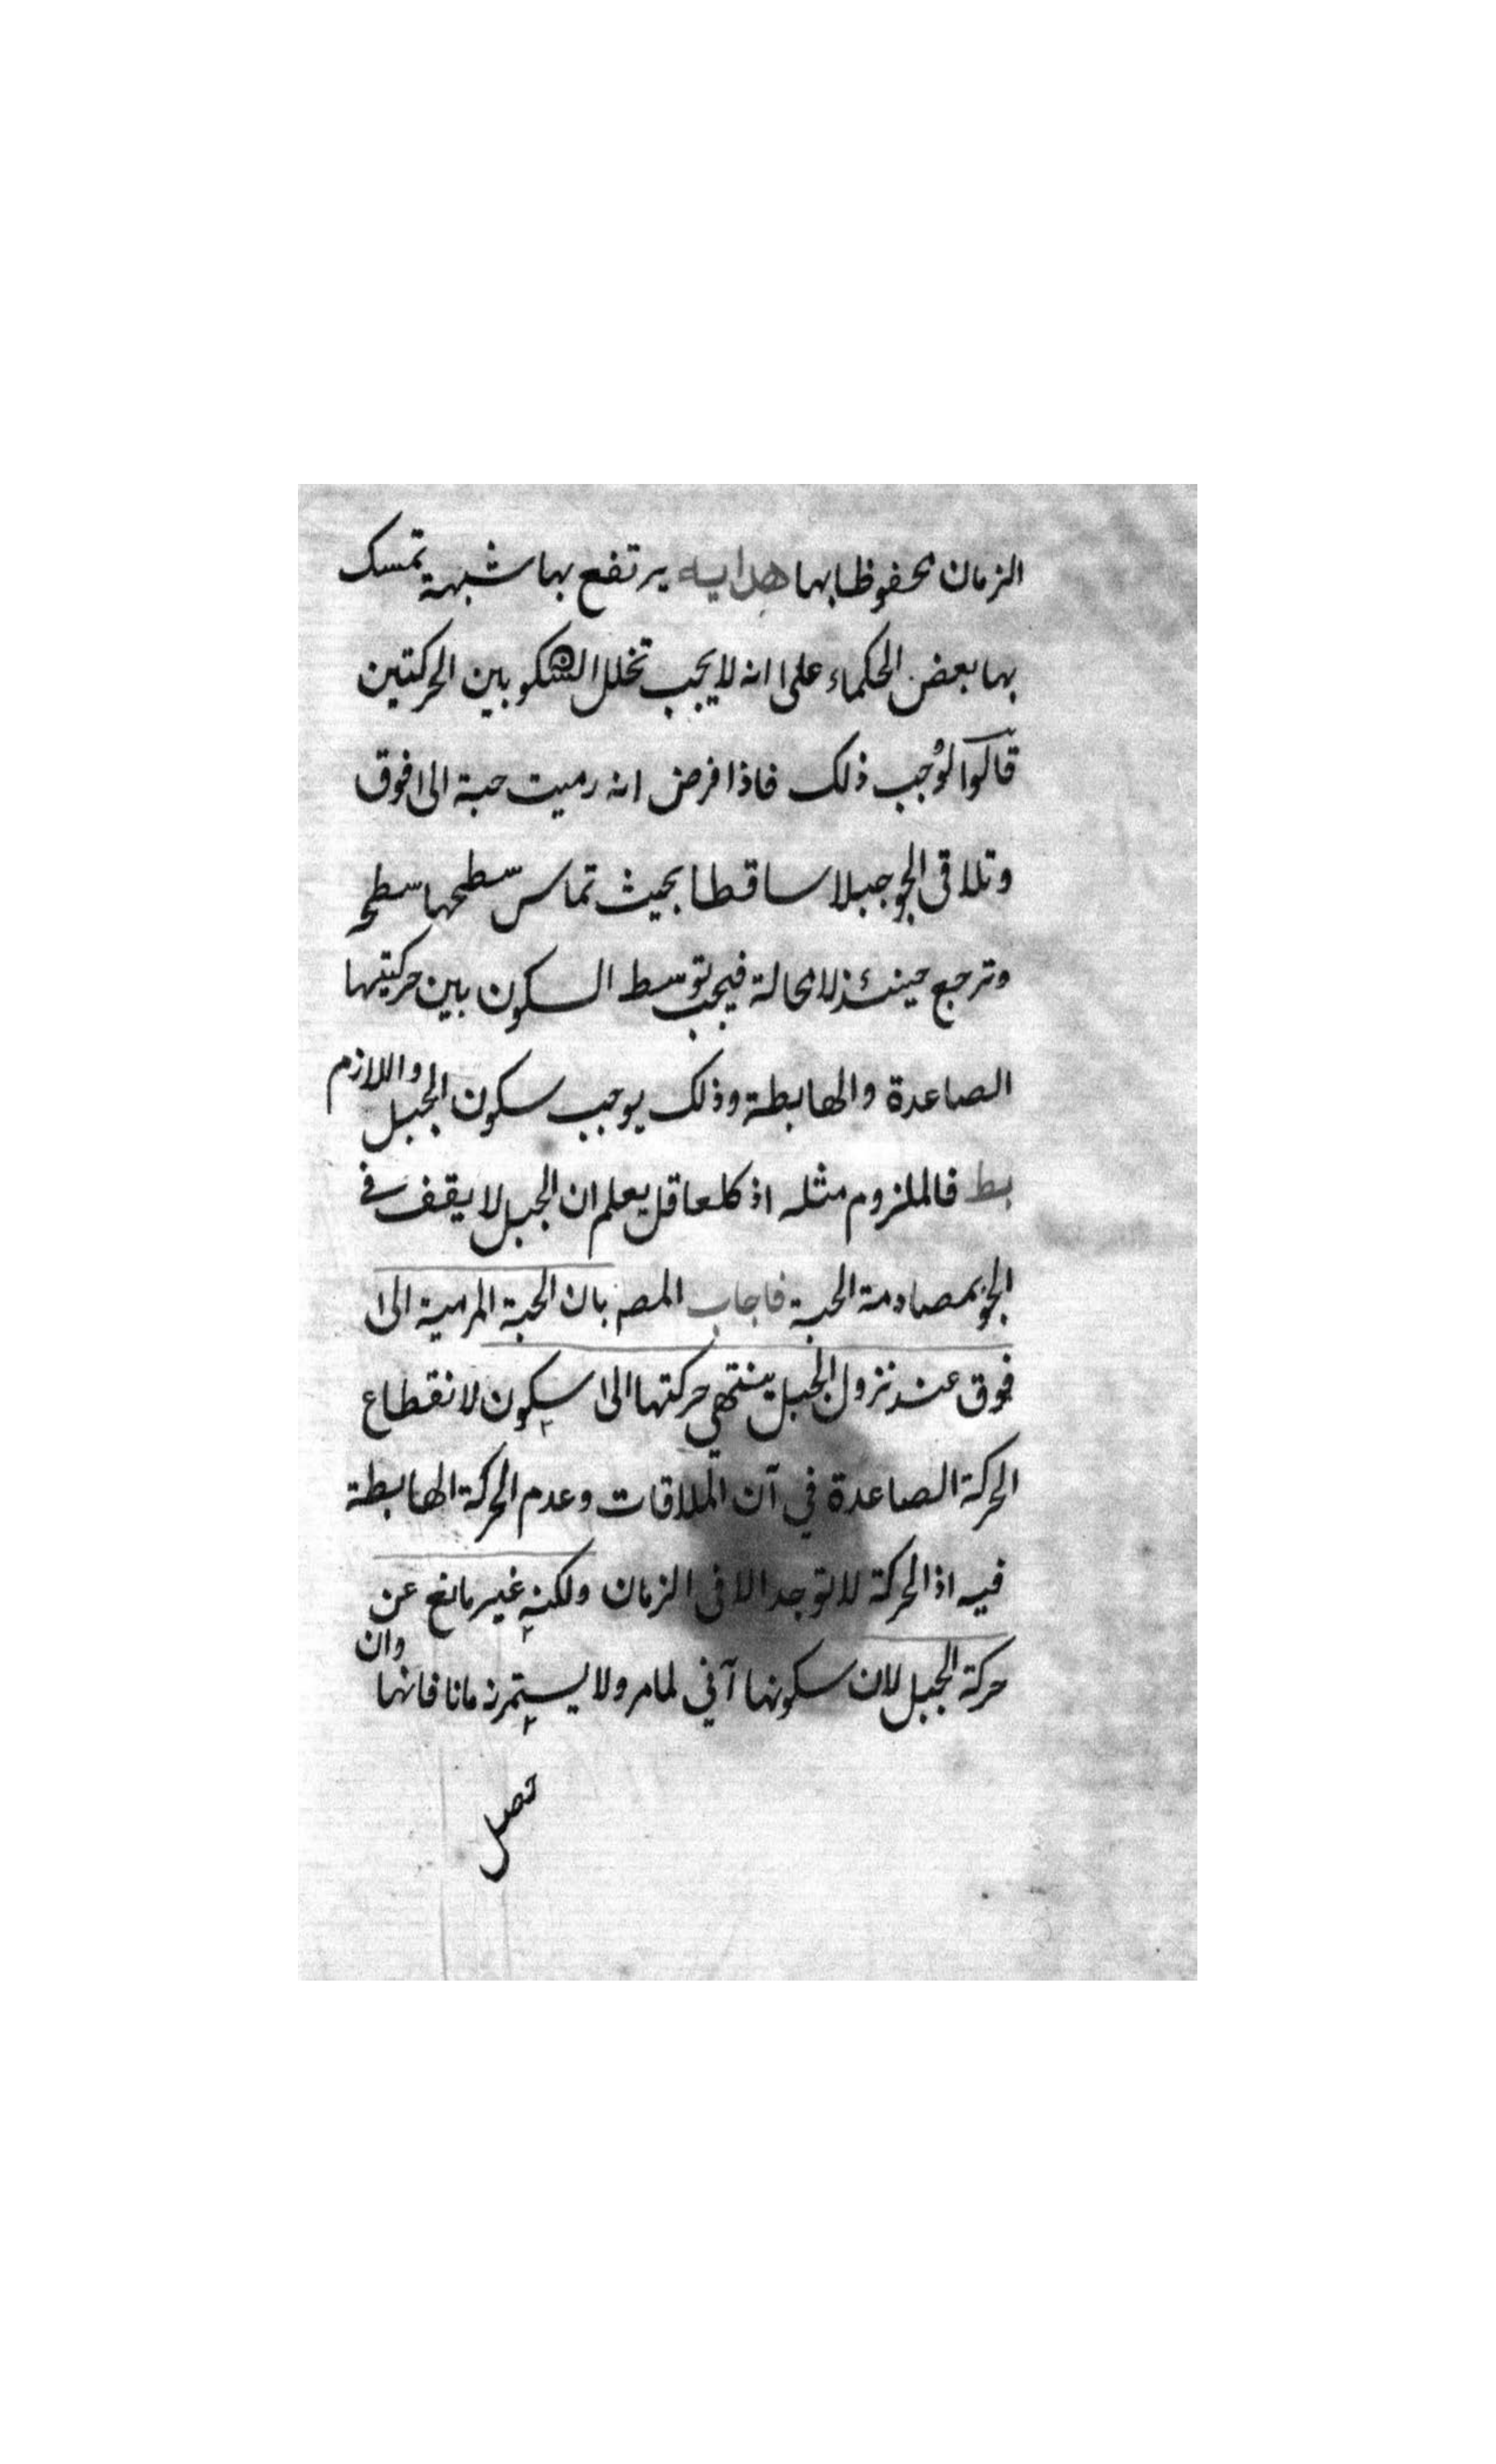 الزمان محفوظا بها هداية يرتفع بها شبهة تمسك
بها بعض الحكماء على انه لا يجب تخلل السكون بين الحركتين
قالوا لو وجب ذلك فاذا فرض انه رميت حبة الى فوق
وتلاقى الجو جبلا ساقطا بحيث تماس سطحها سطحه
وترجع حينئذ لا محالة فيجب توسط السكون بين حركتيها
الصاعدة والهابطة وذلك يوجب سكون الجبل واللازم
بط فالملزوم مثله اذ كل عاقل يعلم ان الجبل لا يقف في
الجو بمصادمة الحبة فاجاب المصـ بان الحبة المرمية الى
فوق عند نزول الجبل ينتهي حركتها الى سكون لانقطاع
الحركة الصاعدة في آن الملاقات وعدم الحركة الهابطة
فيه اذ الحركة لا توجد الا في الزمان ولكنه غير مانع عن
حركة الجبل لان سكونها آني لما مر ولا يستمر زمانا فانها وان
تصل